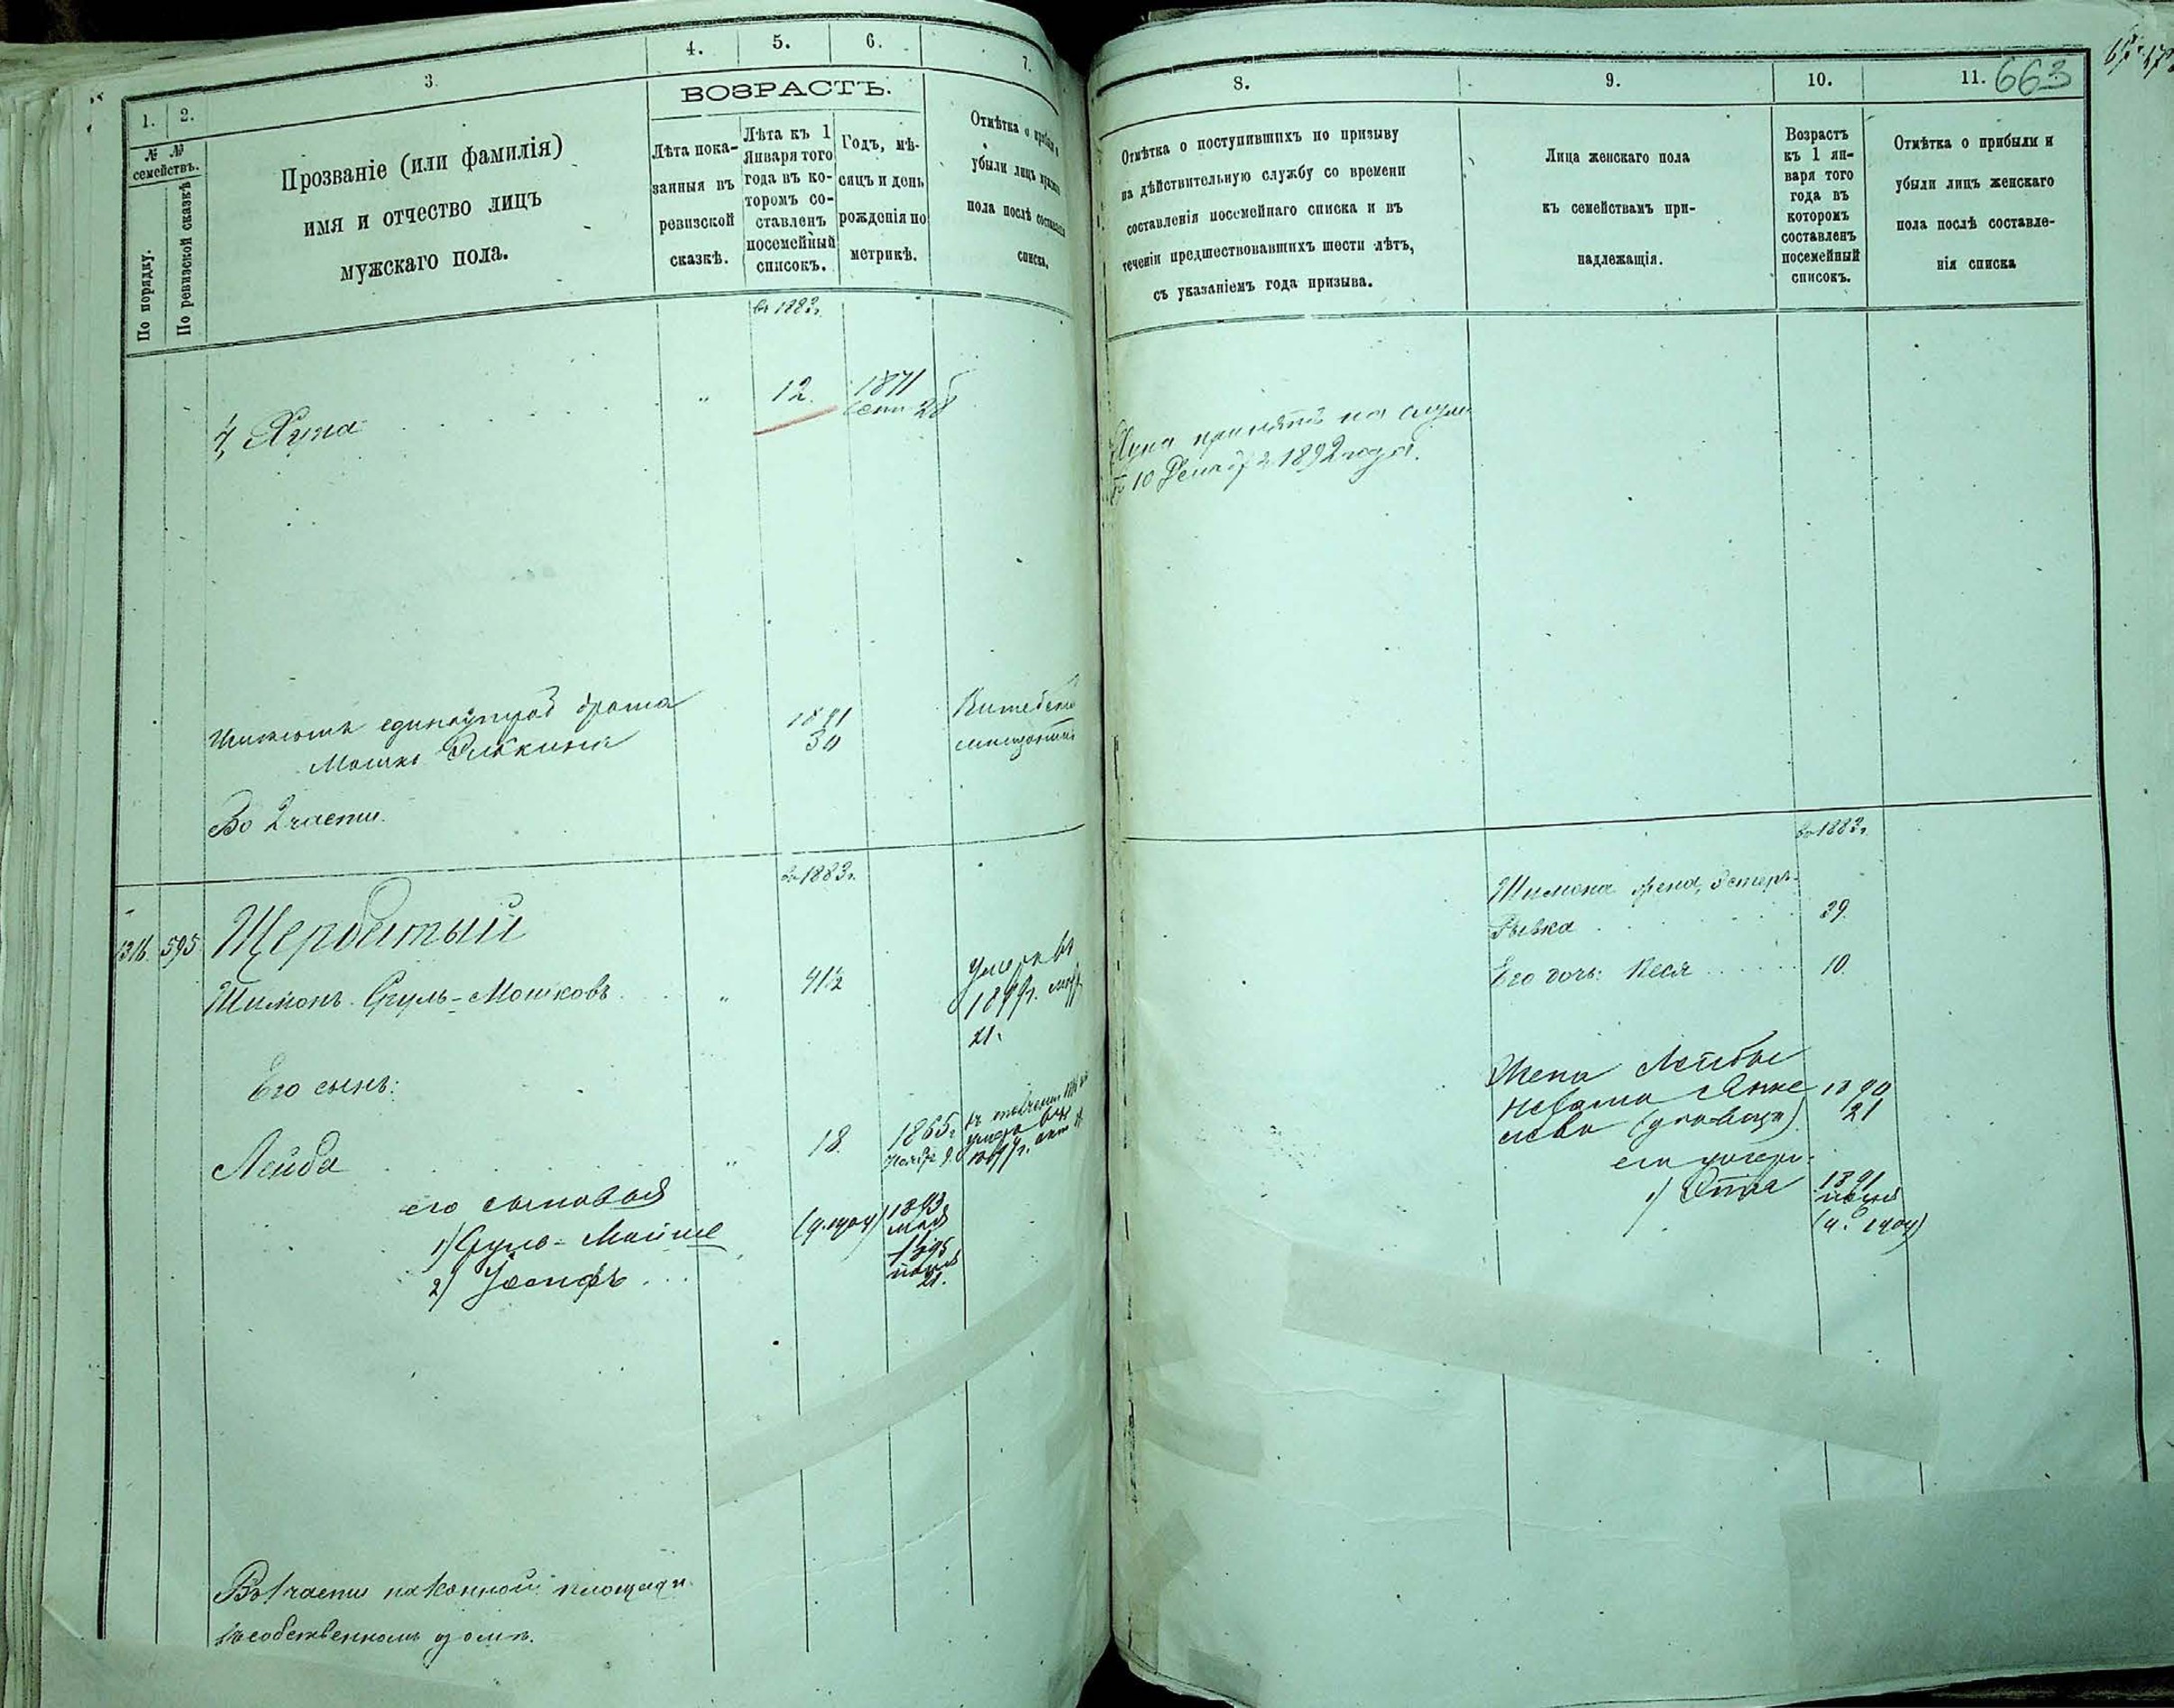 1.
2.
3.
4.
5.
6.
7.
№ №
семействъ.
По порядку.
По ревизской сказкѣ
Прозваніе (или фамилія)
имя и отчество лицъ
мужскаго пола.
ВОЗРАСТЪ.
Лѣта пока-
занныя въ
ревизской
сказкѣ.
Лѣта къ 1
Января того
года въ ко-
торомъ со-
ставленъ
посемейный
списокъ.
Годъ, мѣ-
сяцъ и день
рожденія по
метрикѣ.
Отмѣтка о
убыли лицъ
пола послѣ
списка.
въ 1883 г.
4, Хуна
" 12. 1871
Сент 28
единоутроб брата
Мошка
1891
30
Витебск
Во 2 части.
въ 1883 г.
1316. 595 Щербатый
Шимонъ Сруль-Мошковъ " 41½
Умеръ въ
21.
Его сынъ:
Лейба " 18. 1865 г.
его сыновья
1) Сруль-Мойше 1893
мая
2) Іосифъ 1895
21.
Въ 1 части на Конной площади
въ собственномъ домѣ.
8.
9.
10.
11. 663
Отмѣтка о поступившихъ по призыву
на дѣйствительную службу со времени
составленія посемейнаго списка и въ
теченіи предшествовавшихъ шести лѣтъ,
съ указаніемъ года призыва.
Лица женскаго пола
къ семействамъ при-
надлежащія.
Возрастъ
къ 1 ян-
варя того
года въ
которомъ
составленъ
посемейный
списокъ.
Отмѣтка о прибыли и
убыли лицъ женскаго
пола послѣ составле-
нія списка
Хуна принятъ на служ
10 Декабр 1892 года.
въ 1883 г.
Шимона жена, Эстеръ-
Рывка 39.
Его дочь: Песя 10.
Жена Лейбы
1890
(вдовица) 21
ея дочери:
1) 1891